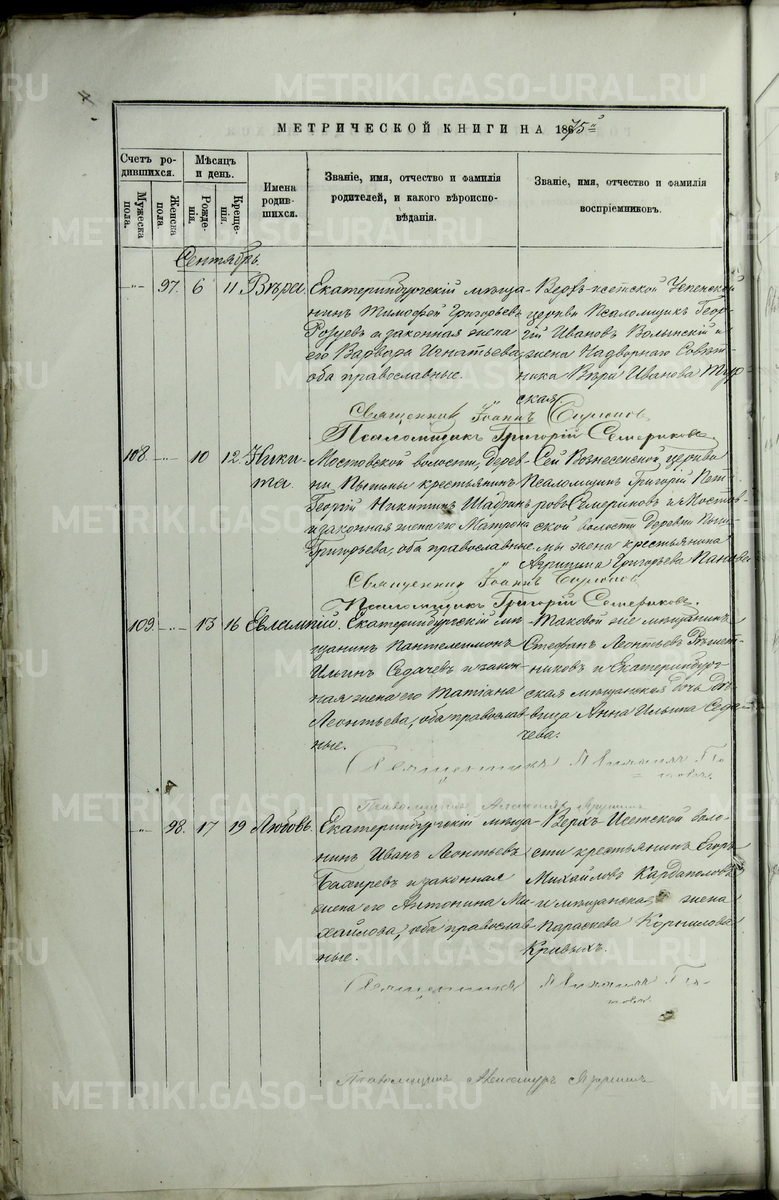 METRIKI.GASO-URAL.RU
МЕТРИЧЕСКОЙ КНИГИ НА 1875й
Счетъ родившихся.
Мужеска пола.
Женска пола.
Мѣсяцъ и день.
Рожденія.
Крещенія.
Имена родившихся.
Званіе, имя, отчество и фамилія родителей, и какого вѣроисповѣданія.
Званіе, имя, отчество и фамилія воспріемниковъ.
Сентябрь.
97. 6 11 Вѣра.
Екатеринбургскій мѣща-
нинъ Тимофей Григорьевъ
и законная жена
его Варвара Игнатьева,
оба православные.
Верхъ-Исетской Успенской
церкви Псаломщикъ Геор-
гій Ивановъ Волынскій и
жена Надворнаго Совѣт-
ника Вѣра Иванова
ская.
Священникъ Іоаннъ
Псаломщикъ Григорій Семериковъ
108. 10 12 Ники-
та.
Мостовской волости, Дерев-
ни Пышмы крестьянинъ
Георгій Никитинъ Шадринъ
и законная жена его Матрона
Григорьева, оба православные
Сей Вознесенской церкви
Псаломщикъ Григорій Пет-
ровъ Семериковъ и Мостов-
ской волости Деревни Пыш-
мы жена крестьянина
Григорьева Панова
Священникъ Іоаннъ
Псаломщикъ Григорій Семериковъ.
109. 13 16 Евлампій.
Екатеринбургскій мѣ-
щанинъ Пантелеимонъ
Ильинъ Седачевъ и закон-
ная жена его Татіана
Леонтьева, оба православ-
ные.
Таковой же мѣщанинъ
Стефанъ Леонтьевъ Рѣшет-
никовъ и Екатеринбург-
ская мѣщанская дочь дѣ-
вица Анна Ильина Седа-
чева.
Священникъ
Псаломщикъ
98. 17 19 Любовь.
Екатеринбургскій мѣща-
нинъ Иванъ Леонтьевъ
Бахиревъ и законная
жена его Антонина Ми-
хайлова, оба православ-
ные.
Верхъ Исетской воло-
сти крестьянинъ Егоръ
Михайловъ Кардаполовъ
и мѣщанская жена
Параскева Корнилова
Кривыхъ.
Священникъ
Псаломщикъ